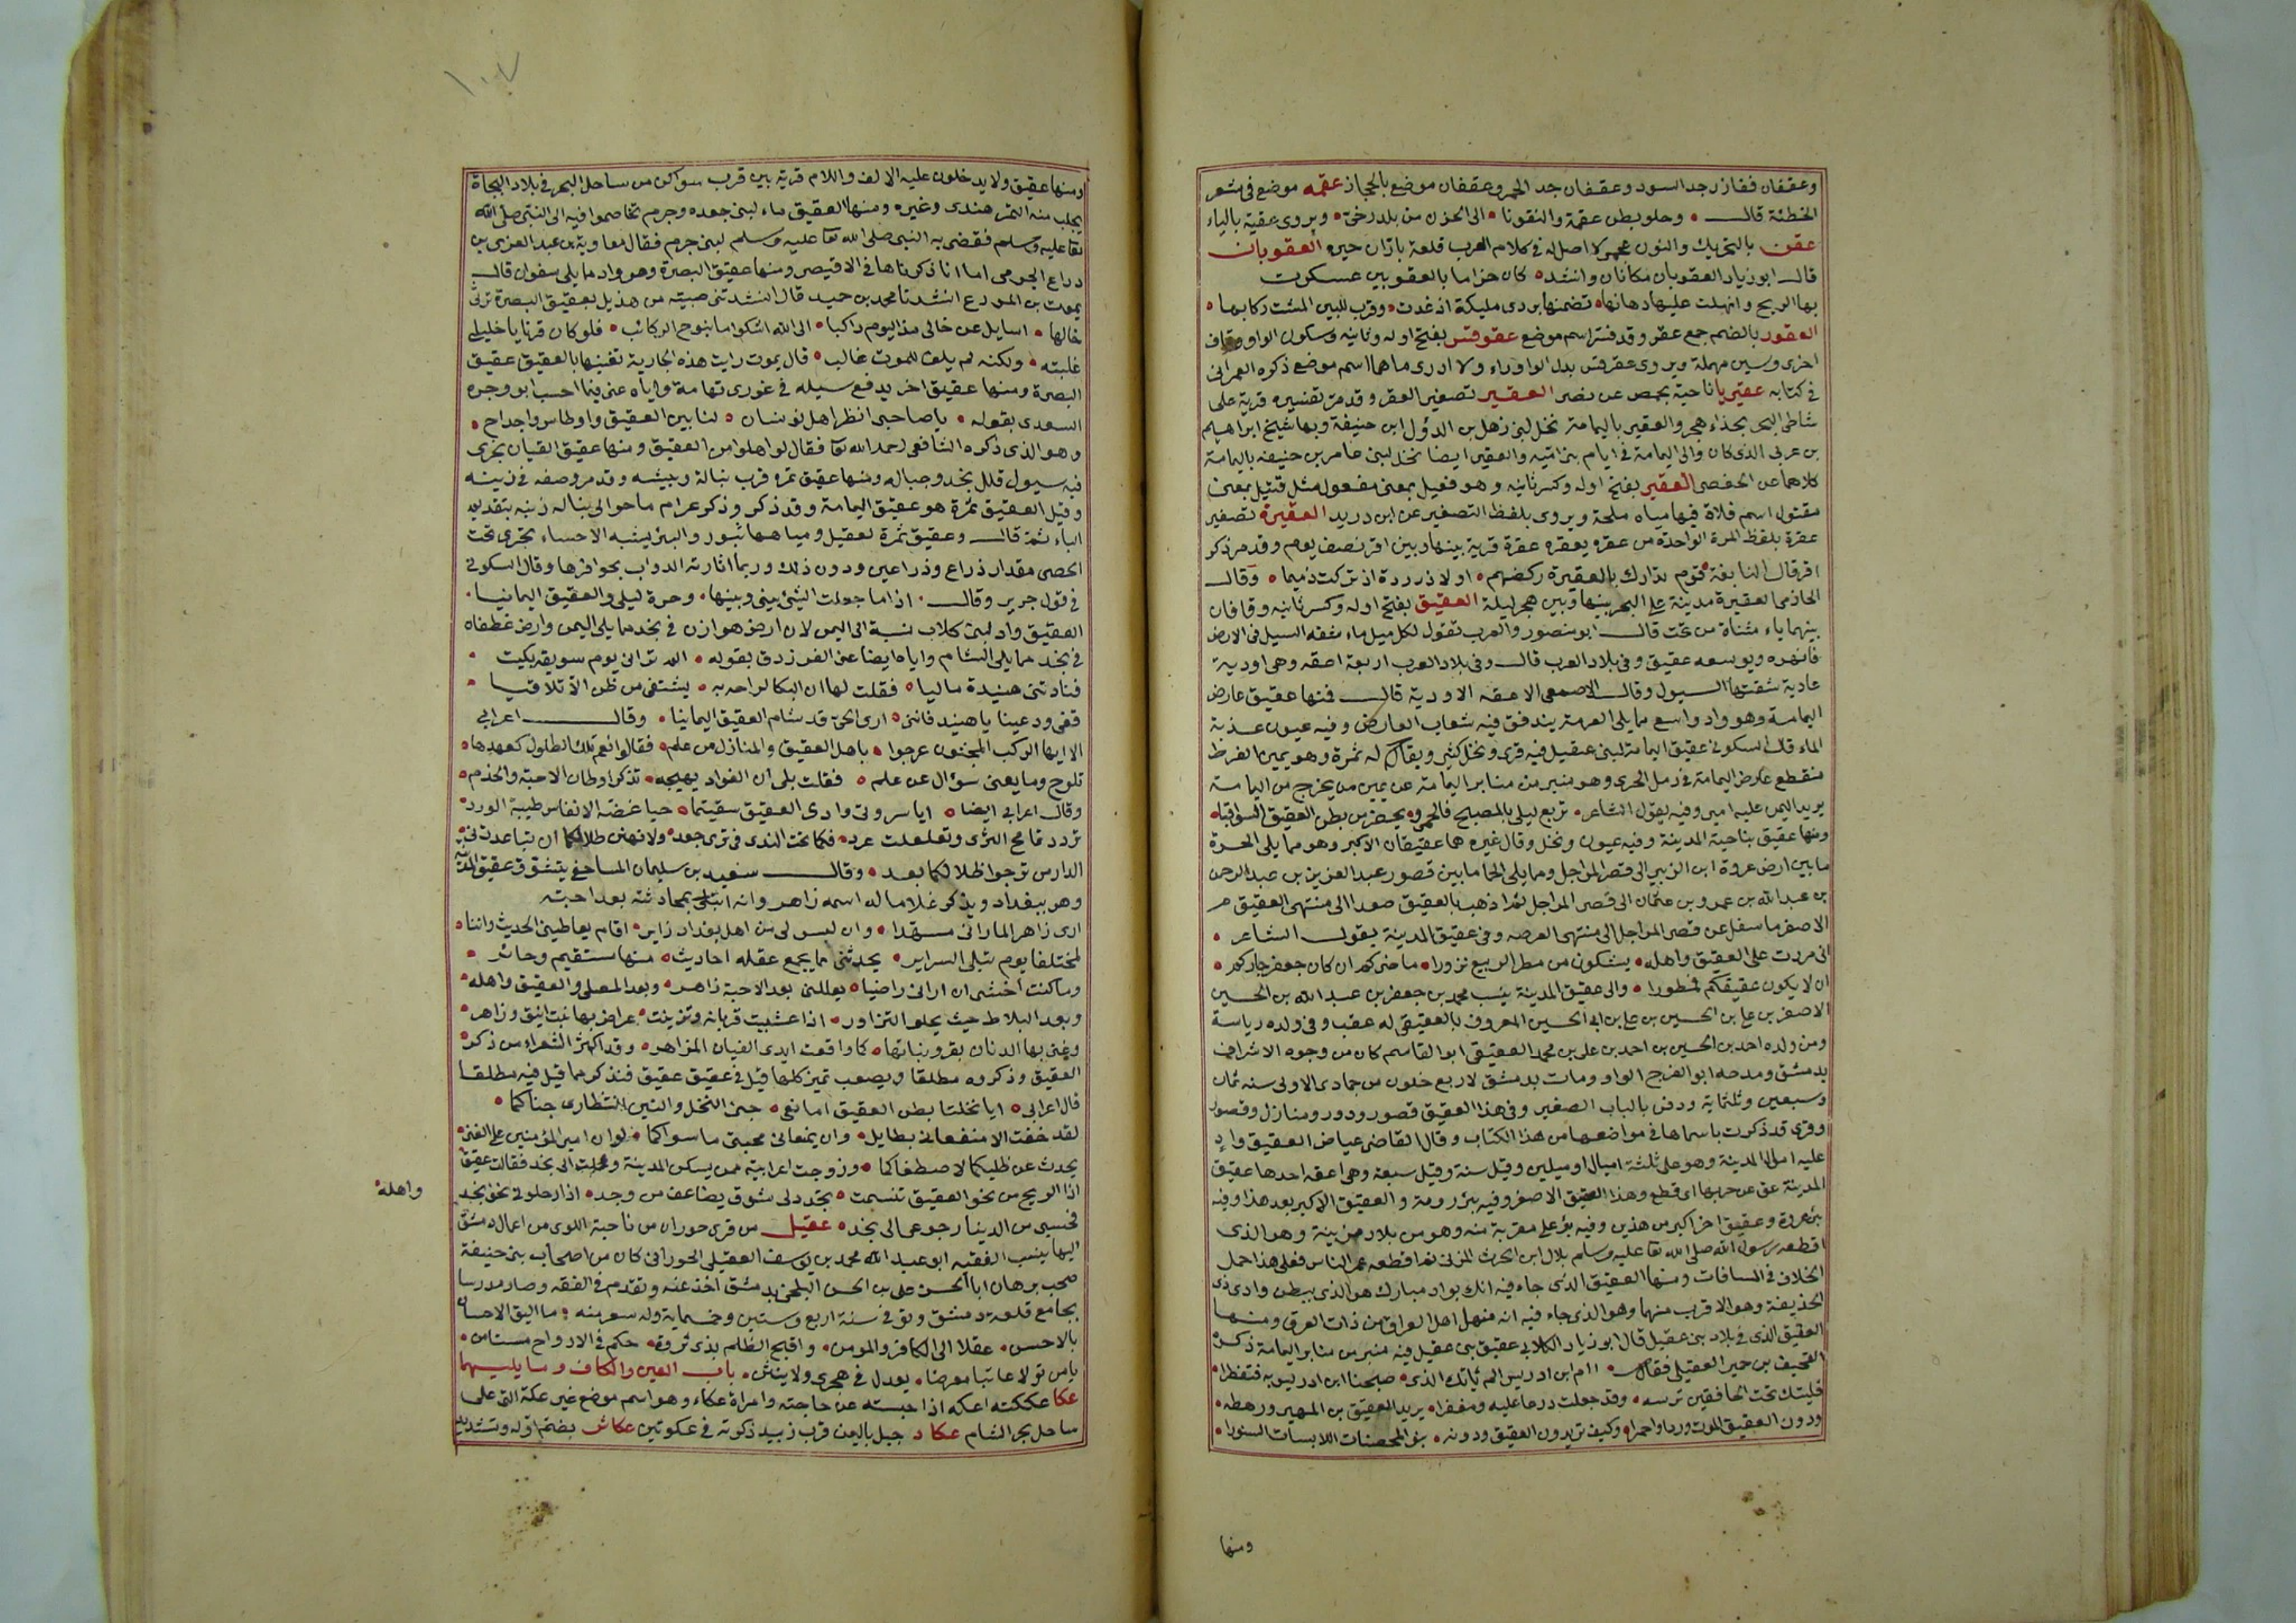 وعقفان فقازر جد السود وعقفان جد الحمر وعقفان موضع بالحجاز عقمه موضع فى شعر
الحطئة قال وحلو بطن عقمة والتقونا الى الحزن من بلد رخى ويروى عقية بالياء
عقن بالتحريك والنون عجمى لا اصل له فى كلام العرب قلعة باران حيره العقوبان
قال ابو زياد العقوبان مكانان وانشد كان خزاما بالعقوبين عسكرت
بها الريح وانهلت عليها دهانها تضمنها بردى مليكة اذ غدت وقرب للبين المشت ركابها
العقور بالضم جمع عقر وقد فسر اسم موضع عقوقس بفتح اوله وثانيه وسكون الواو وقاف
اخرى وسين مهملة ويروى عقرقس بدل الواو راء ولا ادرى ماهما اسم موضع ذكره العمرانى
فى كتابه عقيربا ناحية بحمص عن نصر العقير تصغير العقر وقد مر تفسيره قرية على
شاطى البحر بحذاء هجر والعقير باليمامة نخل لبنى ذهل بن الدؤل ابن حنيفة وبها شيخ ابراهيم
بن عربى الذى كان والى اليمامة فى ايام بنى امية والعقير ايضا نخل لبنى عامر بن حنيفه باليمامة
كلاهما عن الحفصى العقير بفتح اوله وكسر ثانيه وهو فعيل بمعنى مفعول مثل قتيل بمعنى
مقتول اسم فلاة فيها مياه ملحة ويروى بلفظ التصغير عن ابن دريد العقيرة تصغير
عقرة بلفظ المرة الواحدة من عقره يعقره عقرة قرية بينها وبين اقر نصف يوم وقد مر ذكر
اقر قال النابغة قوم تدارك بالعقيرة ركضهم اولاد زردة اذ تركت ذميما وقال
الحازمى العقيرة مدينة على البحر بينها وبين هجر ليلة العقيق بفتح اوله وكسر ثانيه وقافان
بينهما ياء مثناة من تحت قال ابو منصور والعرب تقول لكل مسيل ماء شقه السيل فى الارض
فانهره ويوسعه عقيق وفى بلاد العرب قال وفى بلاد العرب اربعة اعقه وهى اودية
عادية شقتها السيول وقال الاصمعى الاعقه الاودية قال فمنها عقيق عارض
اليمامة وهو واد واسع مما يلى العرمة يندفق فيه شعاب العارض وفيه عيون عذبة
الماء قال السكونى عقيق اليمامة لبنى عقيل فيه قرى ونخل كثير ويقال له تمرة وهو يمين الفرط
منقطع عارض اليمامة فى رمل الجزء وهو منبر من منابر اليمامة عن يمين من يخرج من اليمامة
يريد اليمن عليه امير وفيه يقول الشاعر تربع ليلى بالمصيح فالحمى ويحضر من بطن العقيق السواقيا
ومنها عقيق بناحية المدينة وفيه عيون ونخل وقال غيره هما عقيقان الاكبر وهو مما يلى الحرة
ما بين ارض عروة ابن الزبير الى قصر المراجل ومما يلى الحما ما بين قصور عبد العزيز بن عبد الرحمن
بن عبد الله بن عمرو بن عثمان الى قصر المراجل ثم اذهب بالعقيق صعدا الى منتهى العقيق
الاصفر ما سفل عن قصر المراجل الى منتهى العرصه وفى عقيق المدينة يقول الشاعر
انى مررت على العقيق واهله يشكون من مطر الربيع نزورا ما ضركم ان كان جعفر جاركم
ان لا يكون عقيقكم ممطورا والى عقيق المدينة ينسب محمد بن جعفر بن عبد الله بن الحسين
الاصغر بن على بن الحسين بن على بن ابى الحسين المعروف بالعقيقى له عقب وفى ولده رياسة
ومن ولده احمد بن الحسين بن احمد بن على بن محمد العقيقى ابو القاسم كان من وجوه الاشراف
بدمشق ومدحه ابو الفرج الواو ومات بدمشق لاربع خلون من جمادى الاولى سنه ثمان
وسبعين وثلثماية ودفن بالباب الصغير وفى هذا العقيق قصور ودور ومنازل وقصور
وقرى قد ذكرت باسماها فى مواضعها من هذا الكتاب وقال القاضى عياض العقيق واد
عليه اموال المدينة وهو على ثلثة اميال او ميلين وقيل ستة وقيل سبعة وهى اعقه احدها عقيق
المدينة عق عن حربها اى قطع وهذا العقيق الاصغر وفيه بئر رومة والعقيق الاكبر بعد هذا وفيه
بئر عروة وعقيق اخر اكبر من هذين وفيه بئر على مقربة منه وهو من بلاد مزينة وهو الذى
اقطعه رسول الله صلى الله تعا عليه وسلم بلال ابن الحرث المزنى ثم اقطعه عمر الناس فعلى هذا حمل
الخلاف فى المسافات ومنها العقيق الذى جاء فيه انك بواد مبارك هو الذى ببطن وادى ذى
الحذيفة وهو الاقرب منها وهو الذى جاء فيه انه مهل اهل العراق من ذات العرق ومنها
العقيق الذى فى بلاد بنى عقيل قال ابو زياد الكلابى عقيق بنى عقيل فيه منبر من منابر اليمامة ذكره
القحيف بن حمير العقيلى فقال اام ابن ادريس الم ياتك الذى صبحنا ابن ادريس به فتقطرا
فليتك تحت الخافقين ترسه وقد جعلت درعا عليه ومغفرا يريد العقيق بن المهير ورهطه
ودون العقيق الموت وردا واحمرا وكيف تريدون العقيق ودونه بنو المحصنات اللابسات السنورا
ومنها
١٠٧
ومنها عقيق ولا يدخلون عليه الالف واللام قرية بين قرب سواكن من ساحل البحر فى بلاد البجاة
يجلب منه التمر هندى وغيره ومنها العقيق ماء لبنى جعده وجرم تخاصموا فيه الى النبى صلى الله
تعا عليه وسلم فقضى به النبى صلى الله تعا عليه وسلم لبنى جرم فقال معاوية بن عبد العزى بن
دراع الجرمى اما انا ذكرناها فى الاقيصر ومنها عقيق البصرة وهو واد مما يلى سفوان قال
يموت بن المزرع انشدنا محمد بن حميد قال انشدتنى صبية من هذيل بعقيق البصرة ترثى
خالها اسايل عن خالى مذ اليوم راكبا الى الله اشكو ما تبوح الركائب فلو كان قرنا يا خليلى
غلبته ولكنه لم يلف للموت غالب قال يموت رايت هذه الجارية تغنيها بالعقيق عقيق
البصرة ومنها عقيق اخر يدفع سيله فى غورى تهامة واياه عنى فيما احسب ابو وجزه
السعدى بقوله يا صاحبى انظرا هل تونسان لنا بين العقيق واوطاس واجداح
وهو الذى ذكره الشافعى رحمه الله تعا فقال لو اهلوا من العقيق ومنها عقيق القيان يجرى
فيه سيول قلل نجد وجباله ومنها عقيق تمره قرب تبالة وبيشه وقد مر وصفه فى زبيه
وقيل العقيق تمرة هو عقيق اليمامة وقد ذكر وذكر عرام ما حوالى تباله زبيه بتقديم
الباء ثم قال وعقيق تمرة لعقيل ومياهها بثور والبثر يشبه الاحساء يجرى تحت
الحصى مقدار ذراع وذراعين ودون ذلك وربما اثارته الدواب بحوافرها وقال السكونى
فى قول جرير وقال اذا ما جعلت السى بينى وبينها وحرة ليلى والعقيق اليمانيا
العقيق واد لبنى كلاب نسبه الى اليمن لان ارض هوازن فى نجد مما يلى اليمن وارض غطفان
فى نجد مما يلى الشام واياه ايضا عنى الفرزدق بقوله الم تر انى يوم سويقه بكيت
فنادتنى هنيدة ماليا فقلت لها ان البكا لراحة به يشتفى من ظن الا تلاقيا
قفى ودعينا يا هنيد فاننى ارى الحى قد شام العقيق اليمانيا وقال اعرابى
الا ايها الركب المجنون عرجوا باهل العقيق والمنازل من علم فقالوا نعم تلك الطلول كعهدها
تلوح وما يعنى سؤال عن علم فقلت بلى ان الفواد يهيجه تذكر اوطان الاحبة والخدم
وقال اعرابى ايضا ايا سروتى وادى العقيق سقيتما حيا غضة الانفاس طيبة الورد
ترددتما مج الثرى وتغلغلت عرو فكما تحت الندى فى ثرى جعد ولا تهنى ظلالكما ان تباعدت بنى
الدار من ترجوا ظلالكما بعد وقال سعيد بن سليمان المساحقى يتشوق عقيق المدينه
وهو ببغداد ويذكر غلاما له اسمه زاهر وانه ابتلى بمحادثته بعد احبته
ارى زاهر الما رانى مسهدا وان ليس لى من اهل بغداد زاير اقام يعاطينى الحديث واننا
لمختلفا يوم تبلى السراير يحدثنى مما يجمع عقله احاديث منها مستقيم وحائر
وما كنت اخشى ان ارانى راضيا يعللنى بعد الاحبة زاهر وبعد المصلى والعقيق واهله
وبعد البلاط حيث يحلو التزاور اذا عشبت قريانه وتزينت عراض بها نبت انيق وزاهر
وغنى بها الذبان يقرو نباتها كما واقعت ايدى القيان المزاهر وقد اكثر الشعراء من ذكر
العقيق وذكروه مطلقا ويصعب تميز كلما قيل فى عقيق عقيق فنذكر مما قيل فيه مطلقا
قال اعرابى ايا نخلتا بطن العقيق امانعى جنى النخل والتين انتظارى جناكما
لقد خفت الا منفعانى بطايل وان يمنعانى مجتنى ما سواكما لو ان امير المؤمنين على الغنى
يحدث عن ظليكما لاصطفاكما وزوجت اعرابية ممن يسكن المدينة وحملت الى نجد فقالت
اذا الريح من نحو العقيق تنسمت تجدد لى شوق يضاعف من وجد اذا رحلونى نحو نجد
واهله
فحسبى من الدنيا رجوعى الى نجد عقيل من قرى حوران من ناحية اللوى من اعمال دمشق
اليها ينسب الفقيه ابو عبد الله محمد بن يوسف العقيلى الحورانى كان من اصحاب بنى حنيفة
صحب برهان ابا الحسن على بن الحسن البلخى بدمشق اخذ عنه وتقدم فى الفقه وصار مدرسا
بجامع قلعة دمشق وتوفى فى سنة اربع وستين وخمسماية وله شعر منه ما اليق الاحسان
بالاحسن عقلا الى الكافر والمومن واقبح الظلم بذى ثروة حكم فى الارواح مستامن
يا من تولا عاتبا معرضا يعدل فى هجرى ولا ينثنى باب العين والكاف وما يليهما
عكا عككته اعكه اذا حبسته عن حاجته وامراة عكاء وهو اسم موضع غير عكة التى على
ساحل بحر الشام عكاد جبل باليمن قرب زبيد ذكرته فى عكوتين عكاش بضم اوله وتشديد